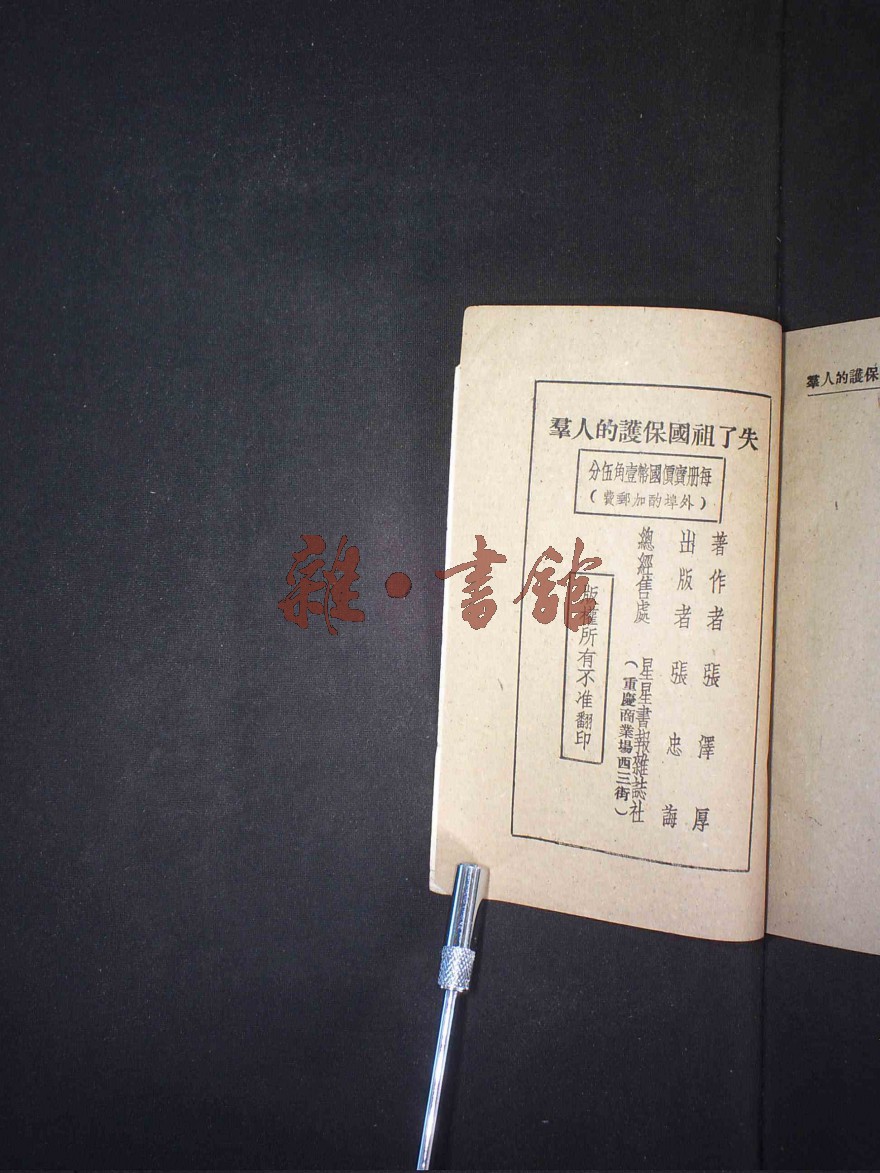 失了祖國保護的人羣
每册實價國幣壹角伍分
（外埠酌加郵費）
著作者 張澤厚
出版者 張忠誨
總經售處 星星書報雜誌社
（重慶商業場西三街）
版權所有不准翻印
保護的人羣
雜·書館